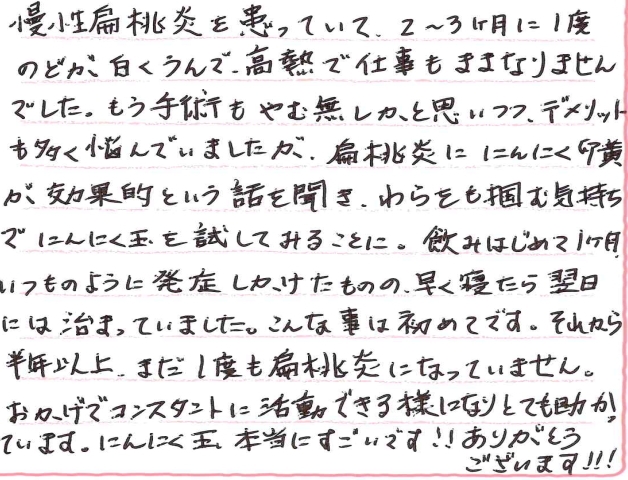 慢性扁桃炎を患っていて、2〜3ヶ月に1度
のどが、白くうんで、高熱で仕事もままなりません
でした。もう手術もやむ無しか、と思いつつ、デメリット
も多く悩んでいましたが、扁桃炎ににんにく卵黄
が、効果的という話を聞き、わらをも掴む気持ち
でにんにく玉を試してみることに。飲みはじめて1ヶ月、
いつものように発症しかけたものの、早く寝たら翌日
には治まっていました。こんな事は初めてです。それから
半年以上、まだ1度も扁桃炎になっていません。
おかげでコンスタントに活動できる様になりとても助かっ
ています。にんにく玉、本当にすごいです!!ありがとう
ございます!!!